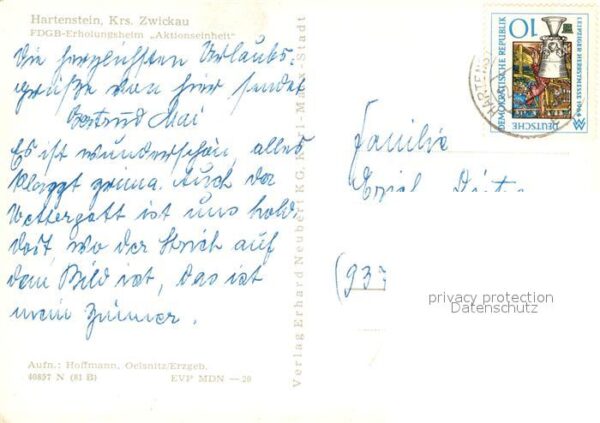 Hartenstein, Krs. Zwickau
FDGB-Erholungsheim „Aktionseinheit"
Die herzlichsten Urlaubs-
grüße von hier sendet
Gertrud Mai
Es ist wunderschön, alles
klappt prima. Auch der
Wettergott ist uns hold.
Dort, wo der Strich auf
dem Bild ist, das ist
mein Zimmer.
Aufn.: Hoffmann, Oelsnitz/Erzgeb.
40857 N (81 B) EVP MDN —20
Verlag Erhard Neubert KG, Karl-Marx-Stadt
10
DEUTSCHE DEMOKRATISCHE REPUBLIK
LEIPZIGER HERBSTMESSE 1964
HARTENS
Familie
Erich
(937
privacy protection
Datenschutz